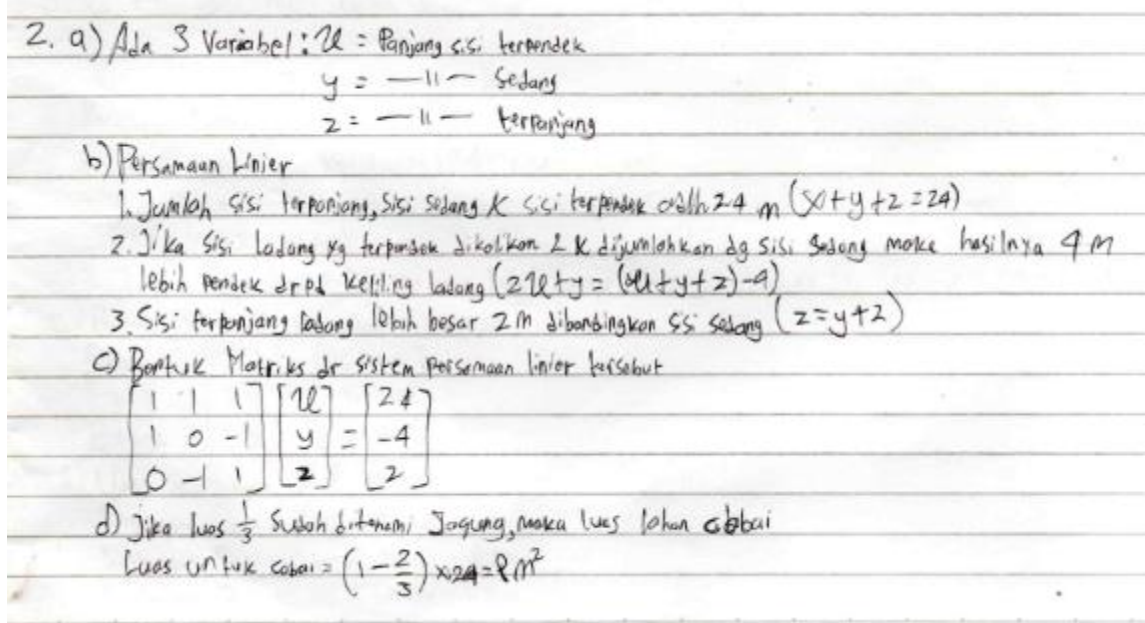 2. a) Ada 3 Variabel : x = Panjang sisi terpendek
y = —11— Sedang
z = —11— terpanjang
b) Persamaan Linier
1. Jumlah sisi terpanjang, sisi sedang & sisi terpendek adlh 24 m (x+y+z=24)
2. Jika sisi ladang yg terpendek dikalikan 2 & dijumlahkan dg sisi sedang maka hasilnya 4 m
lebih pendek drpd keliling ladang (2x+y = (x+y+z)-4)
3. Sisi terpanjang ladang lebih besar 2 m dibandingkan sisi sedang (z=y+2)
c) Bentuk Matriks dr sistem persamaan linier tersebut
[1 1 1] [x] [24]
[1 0 -1] [y] = [-4]
[0 -1 1] [z] [2]
d) Jika luas 1/3 Sudah ditanami Jagung, maka luas lahan cabai
Luas untuk cabai = (1 - 2/3) x 24 = 8 m²